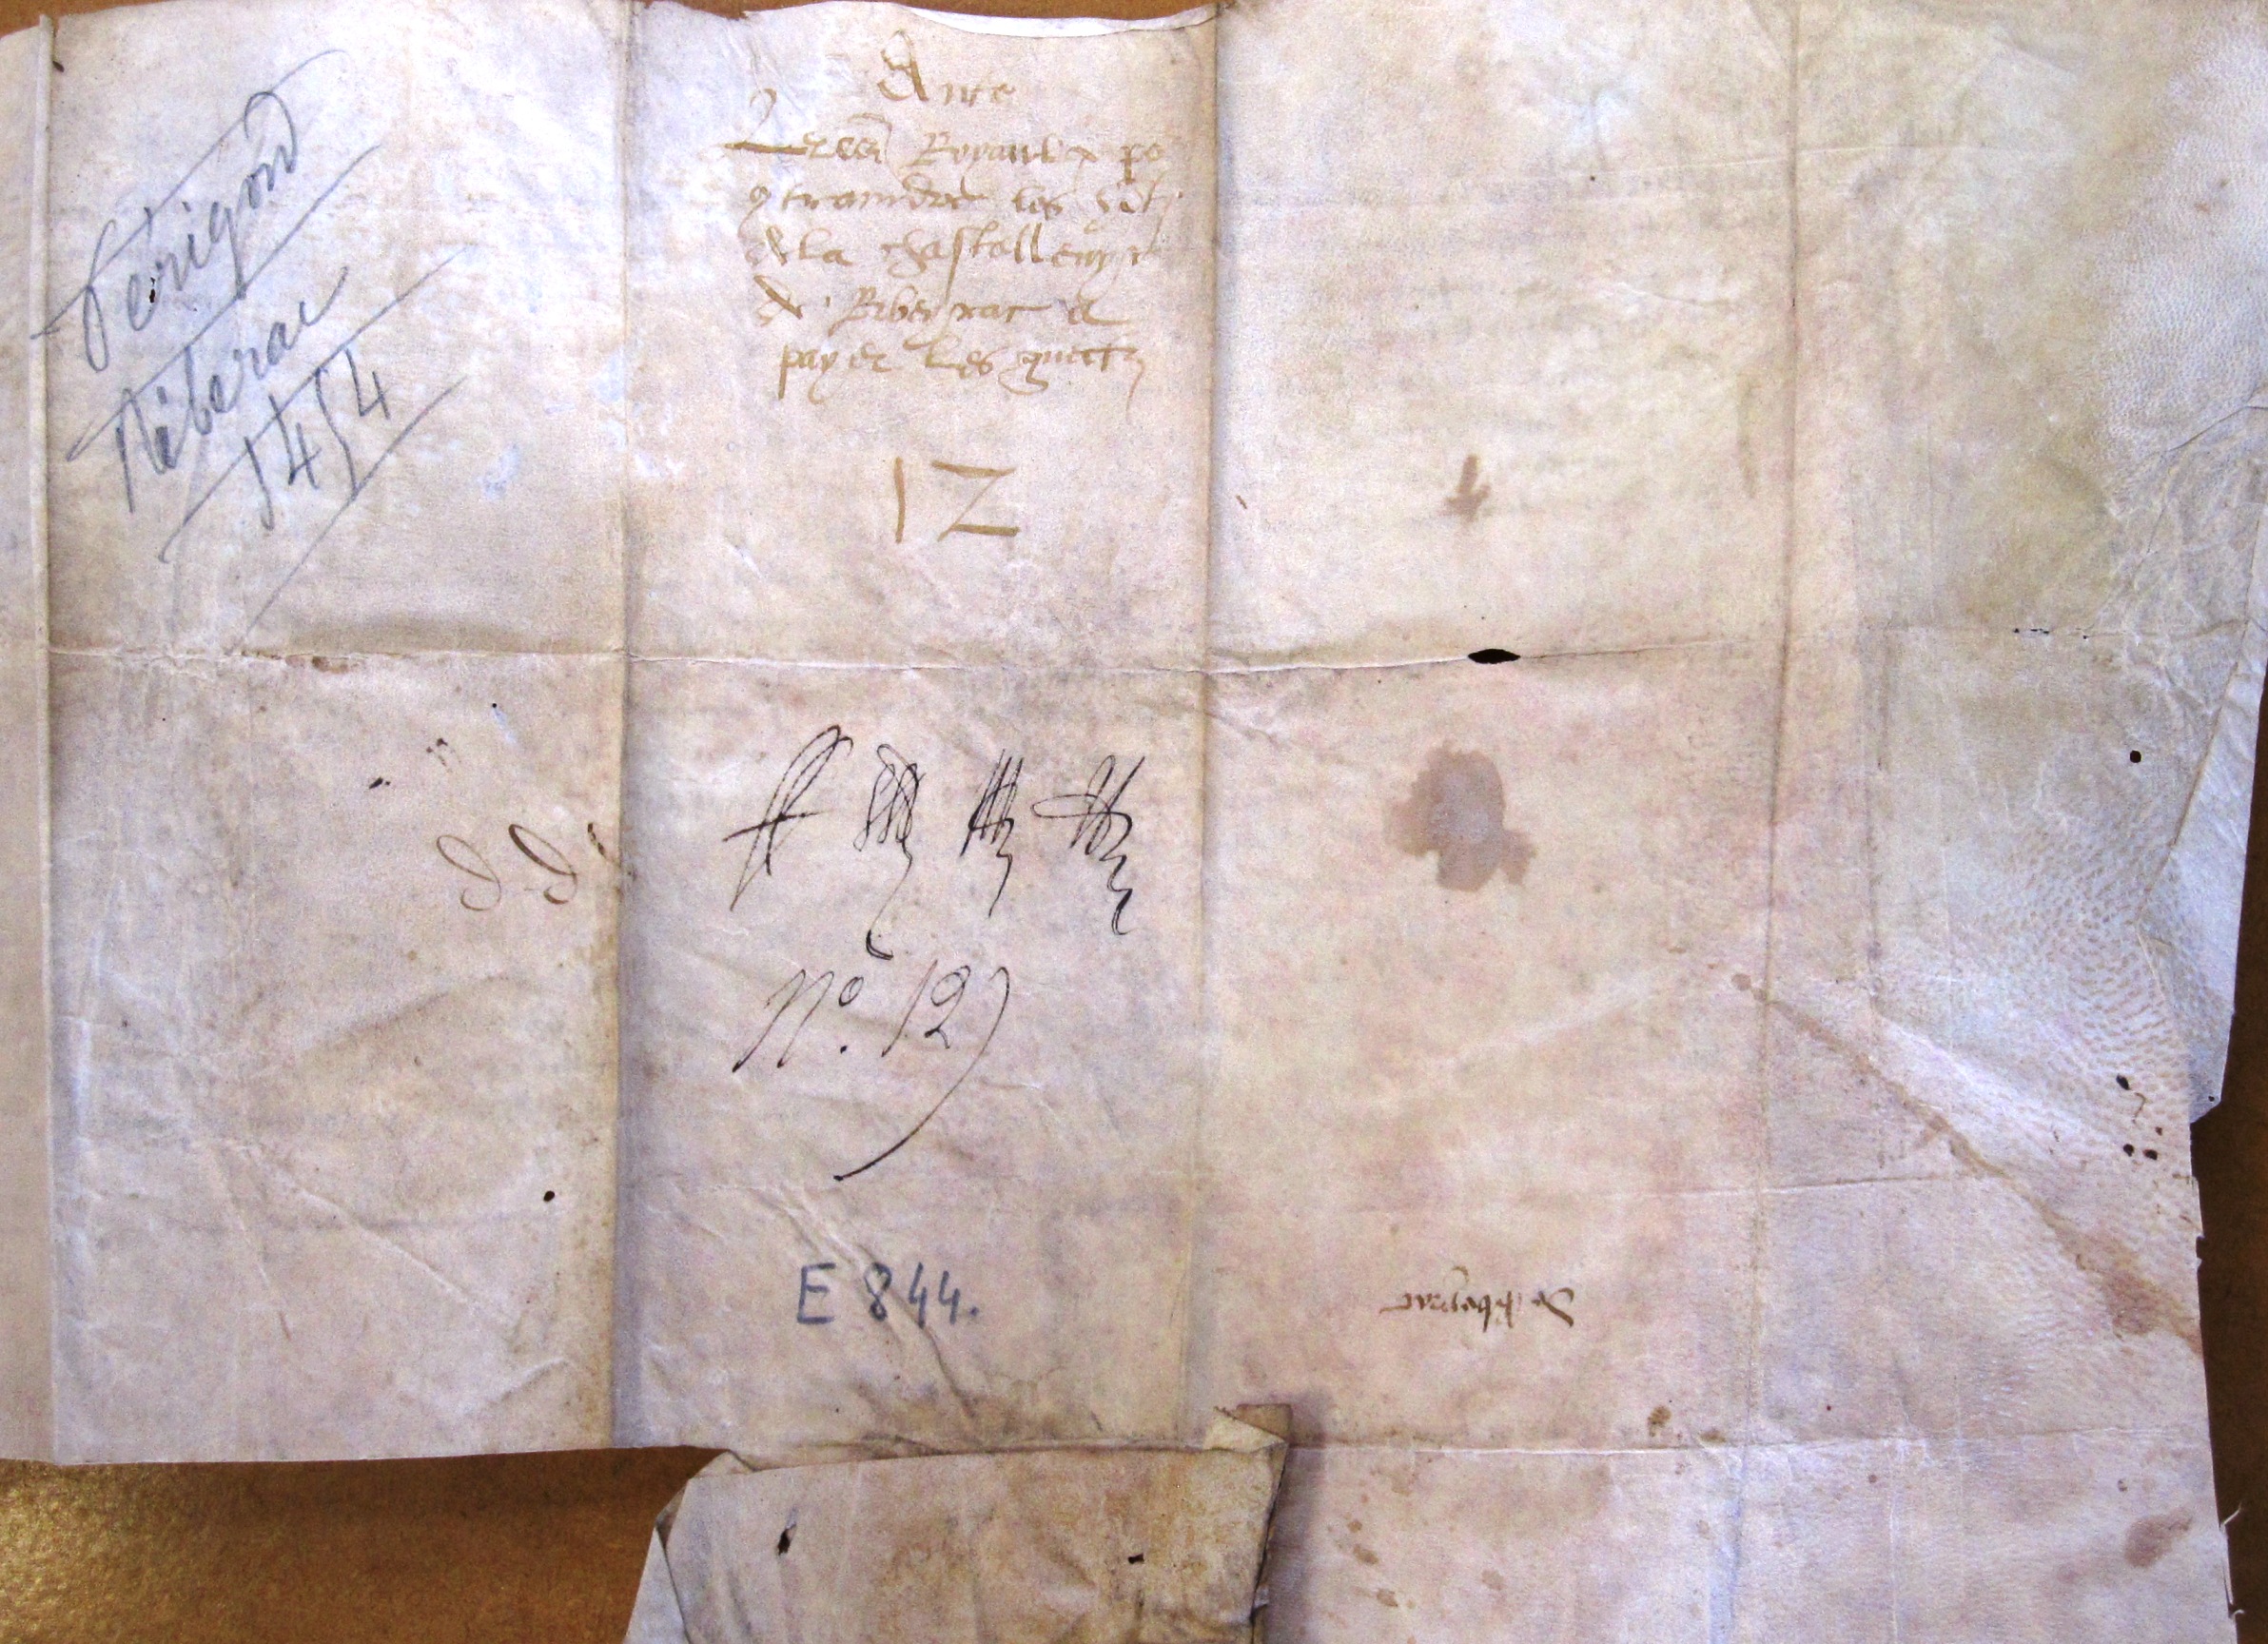 Périgord
Riberac
1454
Lres Royaulx po
9traindre les
de la chastellenye
de Ribeyrac a
payer les guetz
12
Nº. 12
E 844.
de Ribeyrac